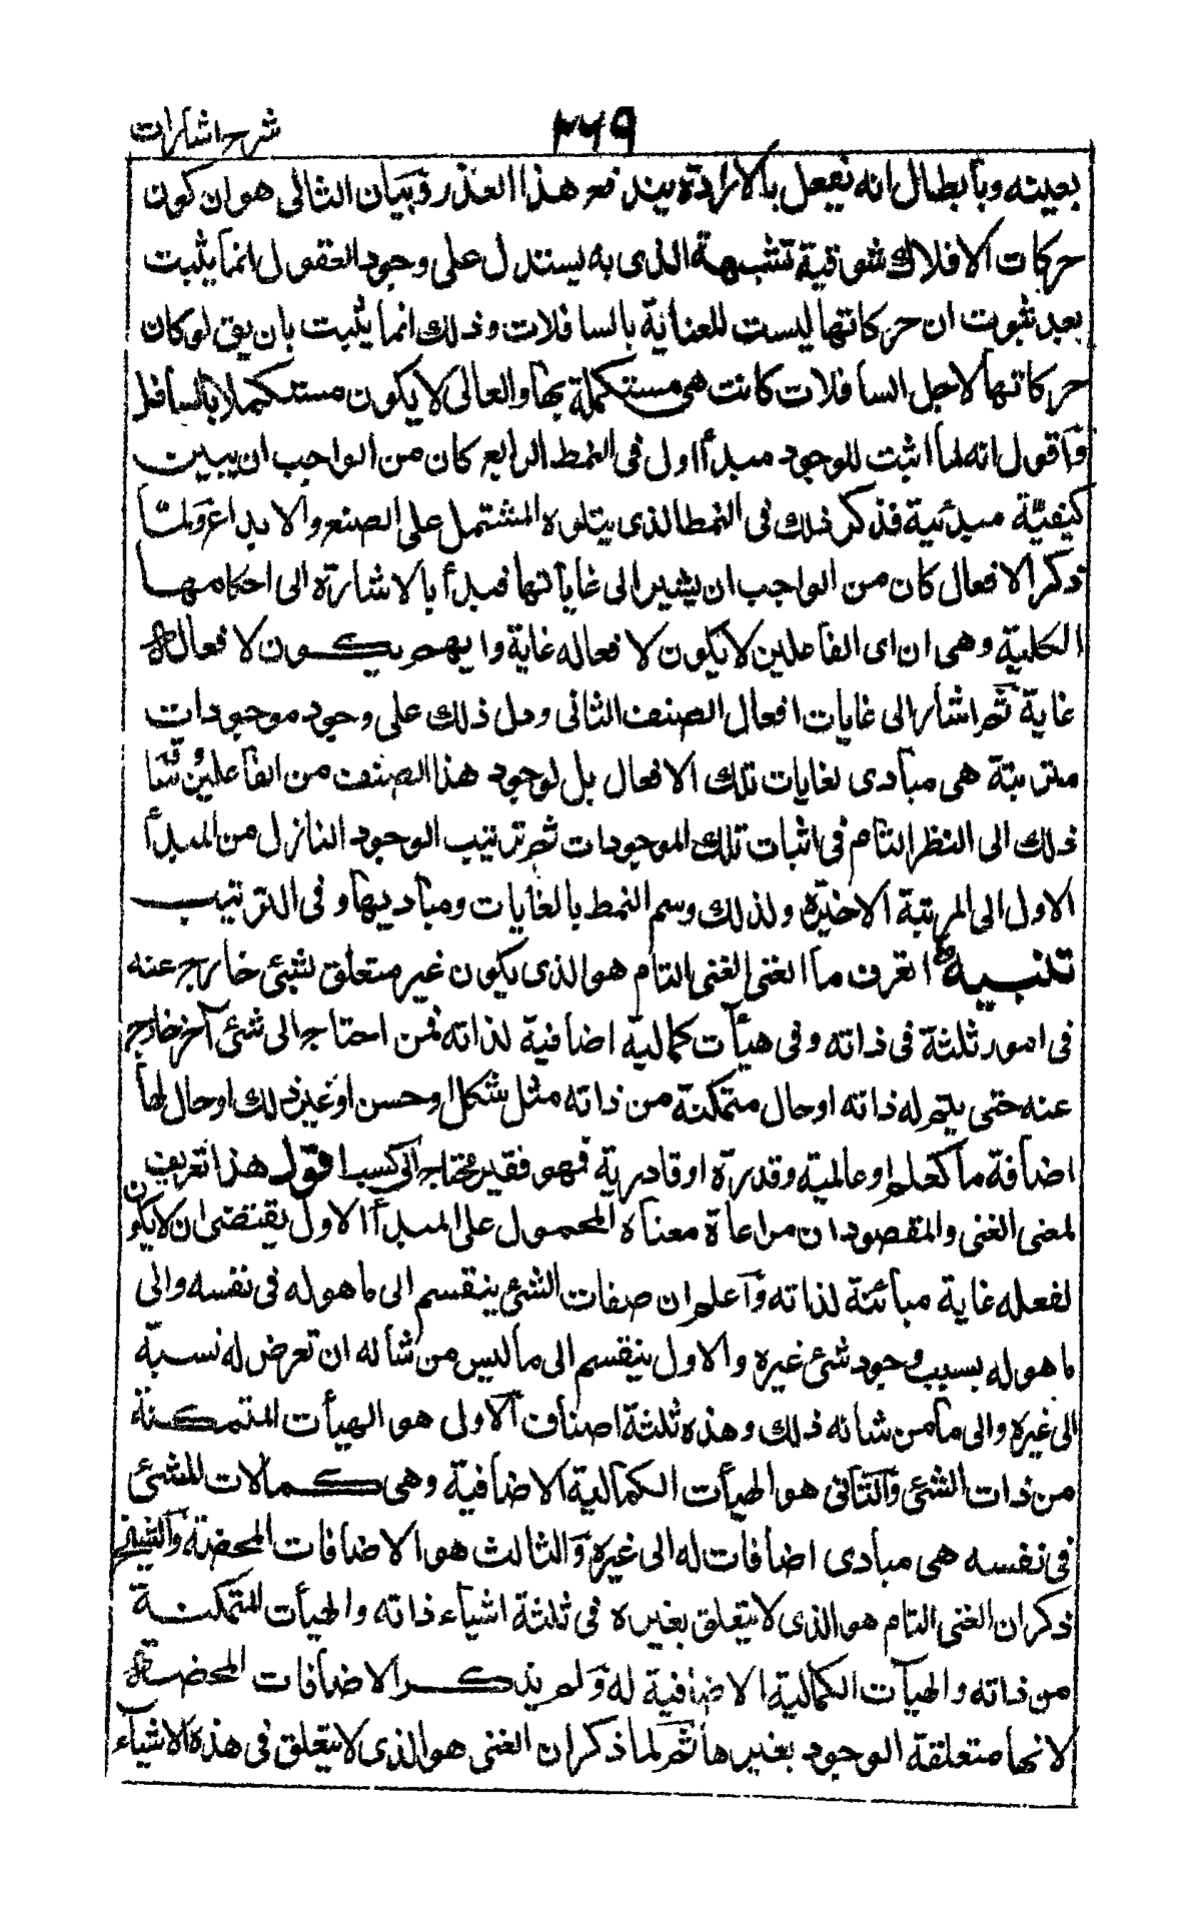 شرح اشارات ٣٤٩
بعينه وبابطال انه يفعل بالارادة يندفع هذا العذر وبيان الثالى هو ان كون
حركات الافلاك شوقية تشبهية الذى به يستدل على وجود العقول انما يثبت
بعد ثبوت ان حركاتها ليست للعناية بالسافلات وذلك انما يثبت بان يق لو كان
حركاتها لاجل السافلات كانت هى مستكملة بها والعالى لا يكون مستكملا بالسافل
واقول انه لما اثبت للوجود مبدأ اول فى النمط الرابع كان من الواجب ان يبين
كيفيّة مبدئية فذكر ذلك فى النمط الذى يتلوه المشتمل على الصنع والابداع ولمّا
ذكر الافعال كان من الواجب ان يشير الى غاياتها فبدأ بالاشارة الى احكامها
الكلية وهى ان اى الفاعلين لا يكون لافعاله غاية وايهم يكون لافعاله
غاية ثم اشار الى غايات افعال الصنف الثانى ودل ذلك على وجود موجودات
مترتبة هى مبادى لغايات تلك الافعال بل لوجود هذا الصنف من الفاعلين وقّا
ذلك الى النظر التام فى اثبات تلك الموجودات ثم ترتيب الوجود النازل من المبدأ
الاول الى المرتبة الاخيرة ولذلك وسم النمط بالغايات ومباديها وفى الترتيب
تنبيه اتعرف ما الغنى الغنى التام هو الذى يكون غير متعلق بشئ خارج عنه
فى امور ثلثة فى ذاته وفى هيآت كمالية اضافية لذاته فمن احتاج الى شئ آخر خارج
عنه حتى يتم له ذاته او حال متمكنة من ذاته مثل شكل او حسن او غير ذلك او حال لها
اضافة ما كعلم او عالمية وقدرة او قادرية فهو فقير محتاج الى كسب اقول هذا تعريف
لمعنى الغنى والمقصود ان مراعاة معناه المحمول على المبدأ الاول يقتضى ان لا يكون
لفعله غاية مبائنة لذاته واعلم ان صفات الشئ ينقسم الى ما هو له فى نفسه والى
ما هو له بسبب وجود شئ غيره والاول ينقسم الى ما ليس من شانه ان تعرض له نسبة
الى غيره والى ما من شانه ذلك وهذه ثلثة اصناف آلاولى هو الهيأت المتمكنة
من ذات الشئ والثانى هو الهيأت الكمالية الاضافية وهى كمالات للشئ
فى نفسه هى مبادى اضافات له الى غيره والثالث هو الاضافات المحضة والشيخ
ذكر ان الغنى التام هو الذى لا يتعلق بغيره فى ثلثة اشياء ذاته والهيأت المتمكنة
من ذاته والهيآت الكمالية الاضافية له ولم يذكر الاضافات المحضة
لانها متعلقة الوجود بغيرها ثم لما ذكر ان الغنى هو الذى لا يتعلق فى هذه الاشياء